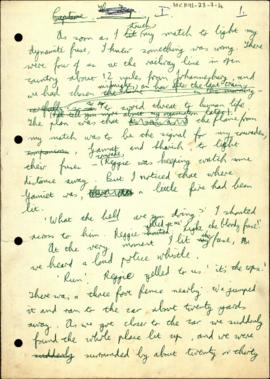 MCH91-23-7-4
Capture I 1.
As soon as I struck my match to light my
dynamite fuse, I knew something was wrong. There
were four of us at the railway line in open
country about 12 miles from Johannesburg, and
we had chosen midnight, an hour after the last train
to avoid threat to human life.
(I will tell you more about my organisation later)
The plan was that the flame from
my match was to be the signal for my comrades,
Laurent and to light
their fuses. Reggie was keeping watch some
distance away. But I noticed that where
Laurent was, a little fire had been
lit.
'What the hell are you doing?' I shouted
across to him. Reggie yelled to us 'Light the bloody fuse'.
At the very moment I lit my fuse,
we heard a loud police whistle.
'Run!' Reggie yelled to us 'it's the cops.'
There was a three foot fence nearby. We jumped
it and ran to the car about twenty yards
away. As we got closer to the car we suddenly
found the whole place lit up, and we were
surrounded by about twenty or thirty